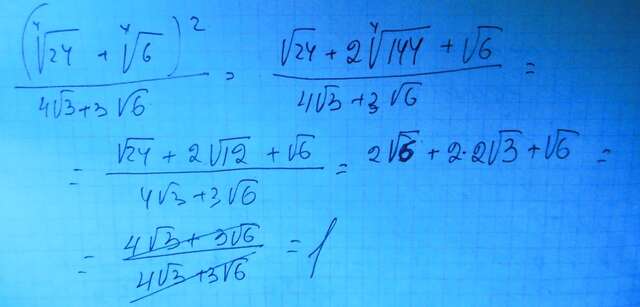 (⁴√24 + ⁴√6)² / (4√3+3√6) = (√24 + 2⁴√144 + √6) / (4√3+3√6) =
= (√24 + 2√12 + √6) / (4√3+3√6) = 2√6 + 2·2√3 + √6 =
= (4√3 + 3√6) / (4√3+3√6) = 1